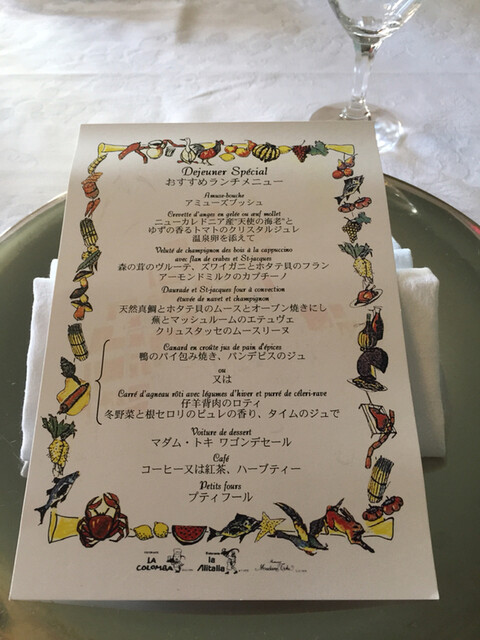 Dejeuner Spécial
おすすめランチメニュー
Amuse-bouche
アミューズブッシュ
Crevette d'anges en gelée ou œuf mollet
ニューカレドニア産"天使の海老"と
ゆずの香るトマトのクリスタルジュレ
温泉卵を添えて
Veluté de champignon des bois à la cappuccino
avec flan de crabes et St-jacques
森の茸のヴルーテ、ズワイガニとホタテ貝のフラン
アーモンドミルクのカプチーノ
Daurade et St-jacques four à convection
étuvée de navet et champignon
天然真鯛とホタテ貝のムースとオーブン焼きにし
蕪とマッシュルームのエテュヴェ
クリュスタッセのムースリーヌ
Canard en croûte jus de pain d'épices
鴨のパイ包み焼き、パンデピスのジュ
ou
又は
Carré d'agneau rôti avec légumes d'hiver et purré de céleri-rave
仔羊背肉のロティ
冬野菜と根セロリのピュレの香り、タイムのジュで
Voiture de dessert
マダム・トキ ワゴンデセール
Café
コーヒー又は紅茶、ハーブティー
Petits fours
プティフール
LA COLOMBA
la Alitalia
Madame Toki